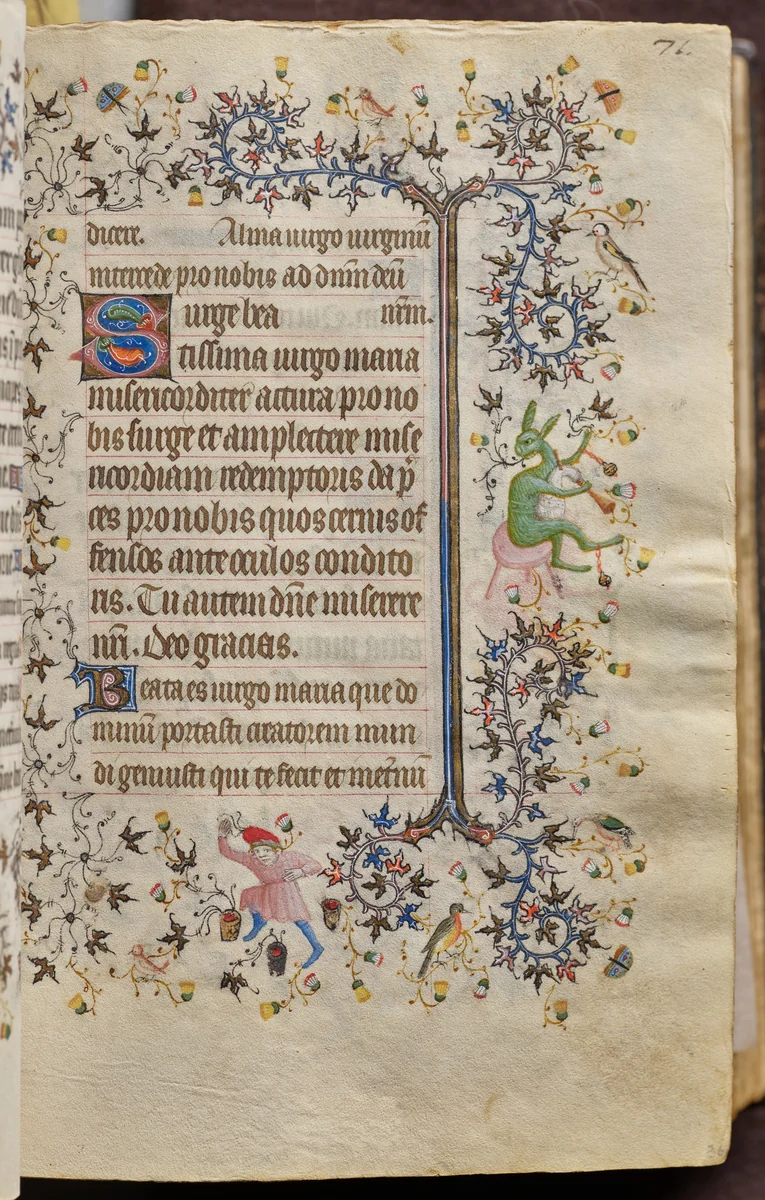 76.
dicere. Alma uirgo uirginū
intercede pro nobis ad dn̄m deū
Surge bea nr̄m.
tissima uirgo maria
misericorditer actura pro no
bis surge et amplectere mise
ricordiam redemptoris da p̄
ces pro nobis quos cernis of
fensos ante oculos condito
ris. Tu autem dn̄e miserere
nr̄i. Deo gracias.
Beata es uirgo maria que do
minū portasti creatorem mun
di genuisti qui te fecit et